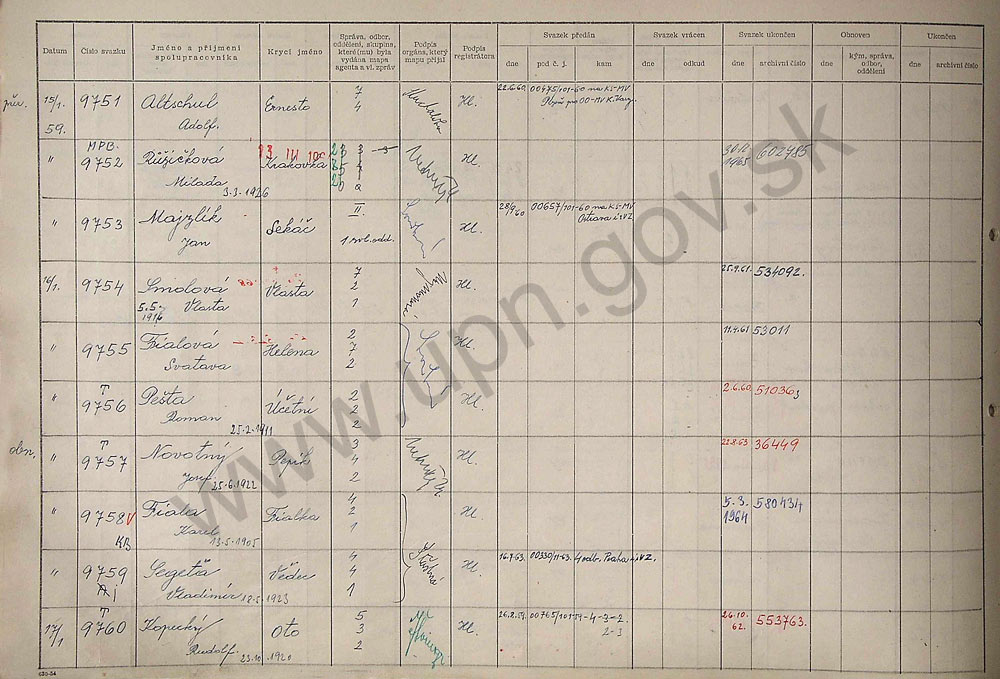 Datum
Číslo svazku
Jméno a příjmení spolupracovníka
Krycí jméno
Správa, odbor, oddělení, skupina, které(mu) byla vydána mapa agenta a vl. zpráv
Podpis orgána, který mapu přijil
Podpis registrátora
Svazek předán
dne
pod č. j.
kam
Svazek vrácen
dne
odkud
Svazek ukončen
dne
archivní číslo
Obnoven
dne
kým, správa, odbor, oddělení
Ukončen
dne
archivní číslo
15/1. 59.
9751
Altschul
Adolf.
Ernesto
7
4
Hl.
22.6.60.
00475/101-60 na KS-MV
"
MPB.
9752
Růžičková
Milada 3.3.1926
Krakovka
Hl.
30.12 1965
602785
"
9753
Majzlík
Jan
Sekáč
II
1 svl. odd.
Hl.
28/9 60
00657/101-60 na KS-MV
Ostrava
16/1.
9754
Smolová
5.5. 1916 Vlasta
Vlasta
7
2
1
Hl.
25.9.61.
534092.
"
9755
Fialová
Svatava
Helena
2
7
2
Hl.
11.4.61
53011
"
T
9756
Pešta
Roman 25.2.1911
Účetní
2
2
2
Hl.
2.6.60.
51036
obn.
"
T
9757
Novotný
Josef 25.6.1922
Pepík
3
4
2
Hl.
22.8.63
36449
"
9758 V
KB
Fiala
Karel 13.5.1905
Fialka
4
2
1
Hl.
5.3. 1964
580434
"
9759
Segeťa
Vladimír 12.5.1923
Vědec
4
4
1
Hl.
16.7.63.
00330/11-63.
4 odb. Praha
17/1
T
9760
Kopecký
Rudolf. 23.10.1920
Oto
5
3
2
Hl.
26.8.59.
00765/101-59-4-3-2.
2-3
26.10. 62.
553763.
www.upn.gov.sk